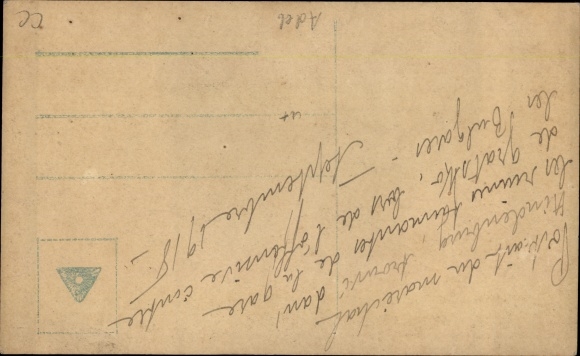 Portrait du maréchal
Hindenburg, trouvé dans
les ruines fumantes de la gare
de Gratsko, lors de l'offensive contre
les Bulgares -
Septembre 1918 -